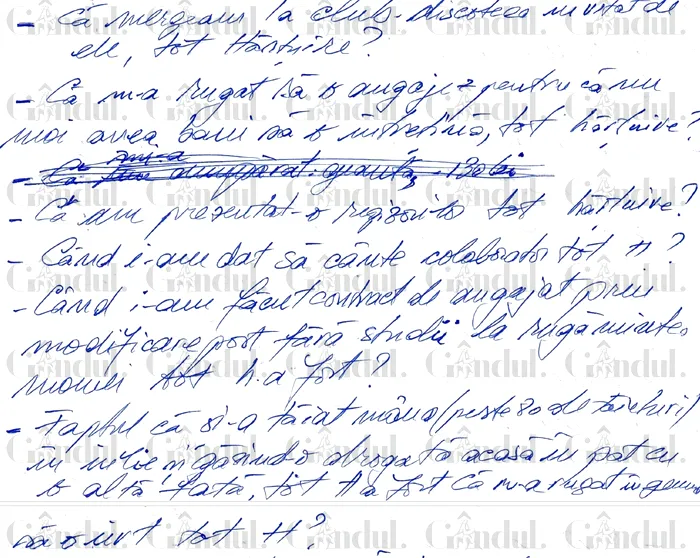 - Că mergeam la club-discotecă invitat de
ele, tot Hărțuire?
- Că m-a rugat să o angajez pentru că nu
mai avea bani să o întrețină, tot hărțuire?
- Că m-a cumpărat geantă 130 lei
- Că am prezentat-o regizorilor tot hărțuire?
- Când i-am dat să cânte colaborator tot H?
- Când i-am făcut contract de angajat prin
modificare post fără studii la rugămintea
mamei tot h. a fost?
- Faptul că și-a tăiat mâna (peste 80 de tăieturi)
în găsind-o drogată acasă în pat cu
o altă fată, tot H a fost Că m-a rugat în
tot H?
Gândul.